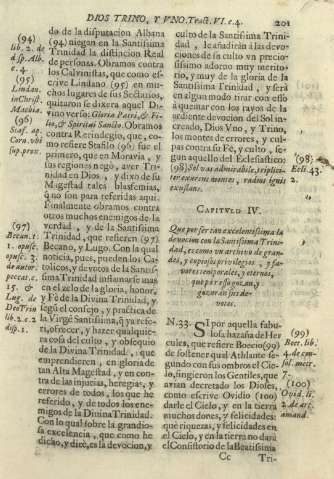 DIOS TRINO, Y VNO. Tract. VI. c. 4.
201
(94)
lib. 2. de
d sp. Alb.
c. 4.
(95)
Lindan.
inChrist.
Machia.
(96)
Staf. ap.
Cora. vbi
sup. prox.
(97)
Becan. t.
1. opusc.
opusc. 3.
de autor.
peccat. c.
15. &
Lug. de
DeoTrin
lib. 2. c. 2
disp. 1.
do de la disputacion Albana
(94) niegan en la Santissima
Trinidad la distincion Real
de personas. Obramos contra
los Calvinistas, que como es-
crive Lindano (95) en mu-
chos lugares de sus Sectarios,
quitaron se dixera aquel Di-
vino verso: Gloria Patri, & Fi-
lio, & Spiritui Sancto. Obramos
contra
como refiere Stafilo (96) fue el
primero, que en Moravia, y
sus regiones negò, aver Tri-
nidad en Dios, y dixo de su
Magestad tales blasfemias,
que no son para referidas aqui.
Finalmente obramos contra
otros muchos enemigos de la
verdad, y de la Santissima
Trinidad, que refieren (97)
Becano, y Lugo. Con la qual
noticia, pues, pueden los Ca-
tolicos, y devotos de la Santis-
sima Trinidad inflamarse mas
en el zelo de la gloria, honor,
y Fè de la Divina Trinidad, y
segun el consejo, y practica de
la Virgē Santissima, que
ofrecer, y hazer qualquie-
ra cosa del culto, y obsequio
de la Divina Trinidad, que
emprendieren, en gloria de
tan Alta Magestad, y en con-
tra de las injurias, heregias, y
errores de todos, los que he
referido, y de todos los ene-
migos de la Divina Trinidad.
Con lo qual sobre la grandio-
sa excelencia, que como he
dicho, y dirè, es la devocion, y
culto de la Santissima Trini-
dad, le añadiràn à las devo-
ciones de su culto vn precio-
sissimo adorno muy merito-
rio, y muy de la gloria de la
Santissima Trinidad, y serà
en algun modo tirar con ello
à quemar con los rayos de la
ardiente devocion del Sol in-
creado, Dios Vno, y Trino,
los montes de errores, y cul-
pas contra su Fè, y culto, se-
gun aquello del Eclesiastico:
(98) Sol vas admirabile, tripli-
citer exurens montes, radios igneos
exufflans.
(98)
Ecli. 43.
2.
CAPITVLO IV.
Que por ser tan excelentissima la
devocion con la Santissima Trini-
dad, es como un archivo de gran-
des, y copiosos privilegios, y fa-
vores temporales, y eternos,
que por ella gozan, y
gozaràn sus de-
votos.
N. 33. SI por aquella fabu-
losa hazaña de Her-
cules, que refiere Boecio (99)
de sostener qual Athlante se-
gundo con sus ombros el Cie-
lo, fingieron los Gentiles, que
avian decretado los Dioses,
como escrive Ovidio (100)
darle el Cielo, y en la tierra
muchos dones, y felicidades:
què riquezas, y felicidades en
el Cielo, y en la tierra no darà
el Consistorio de la Beatissima
(99)
Boet. lib.
4. de con-
sol. metr.
7.
(100)
Ovid. li.
2. de art.
amand.
Cc
Tri-